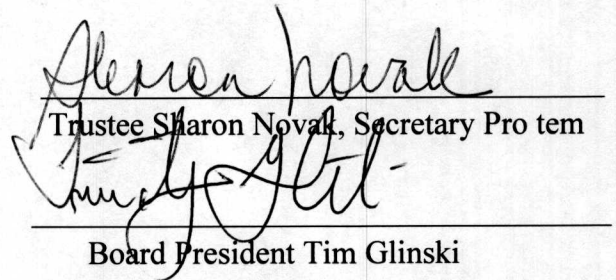 Sharon Novak
Trustee Sharon Novak, Secretary Pro tem
Board President Tim Glinski